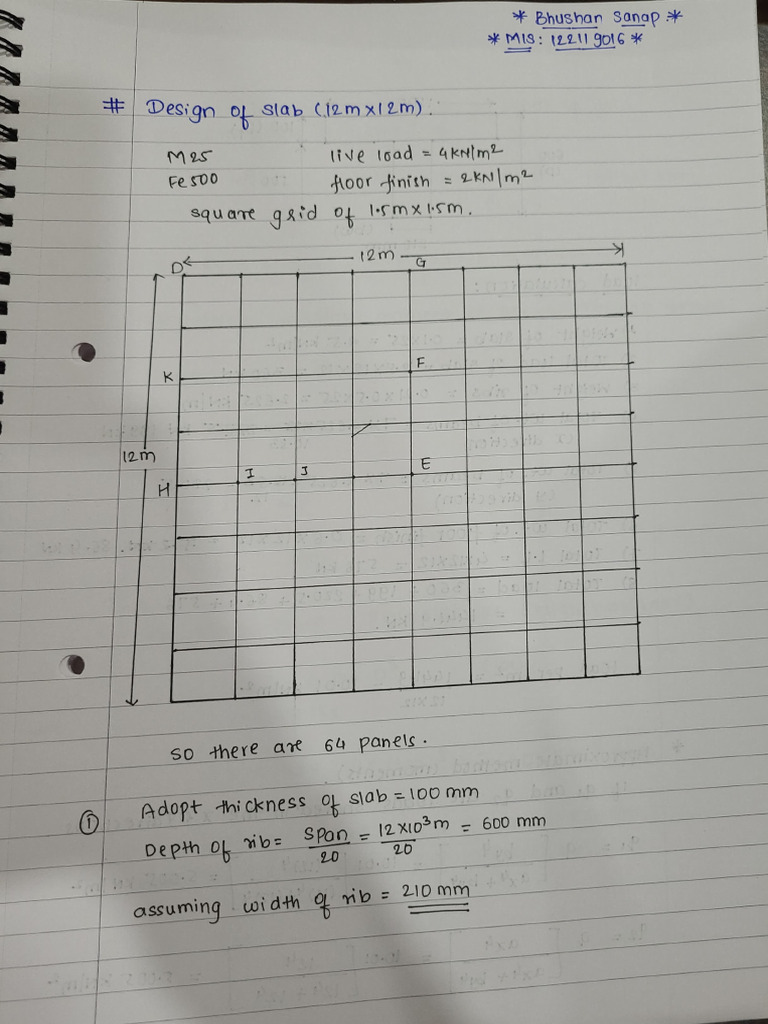 * Bhushan Sanap *
* MIS: 122119016 *
# Design of slab (12m×12m).
M25 live load = 4KN/m²
Fe500 floor finish = 2KN/m²
square grid of 1.5m×1.5m.
12m
D G
K F
12m
H I J E
so there are 64 panels.
① Adopt thickness of slab = 100 mm
Depth of rib = span/20 = 12×10³m/20 = 600 mm
assuming width of rib = 210 mm